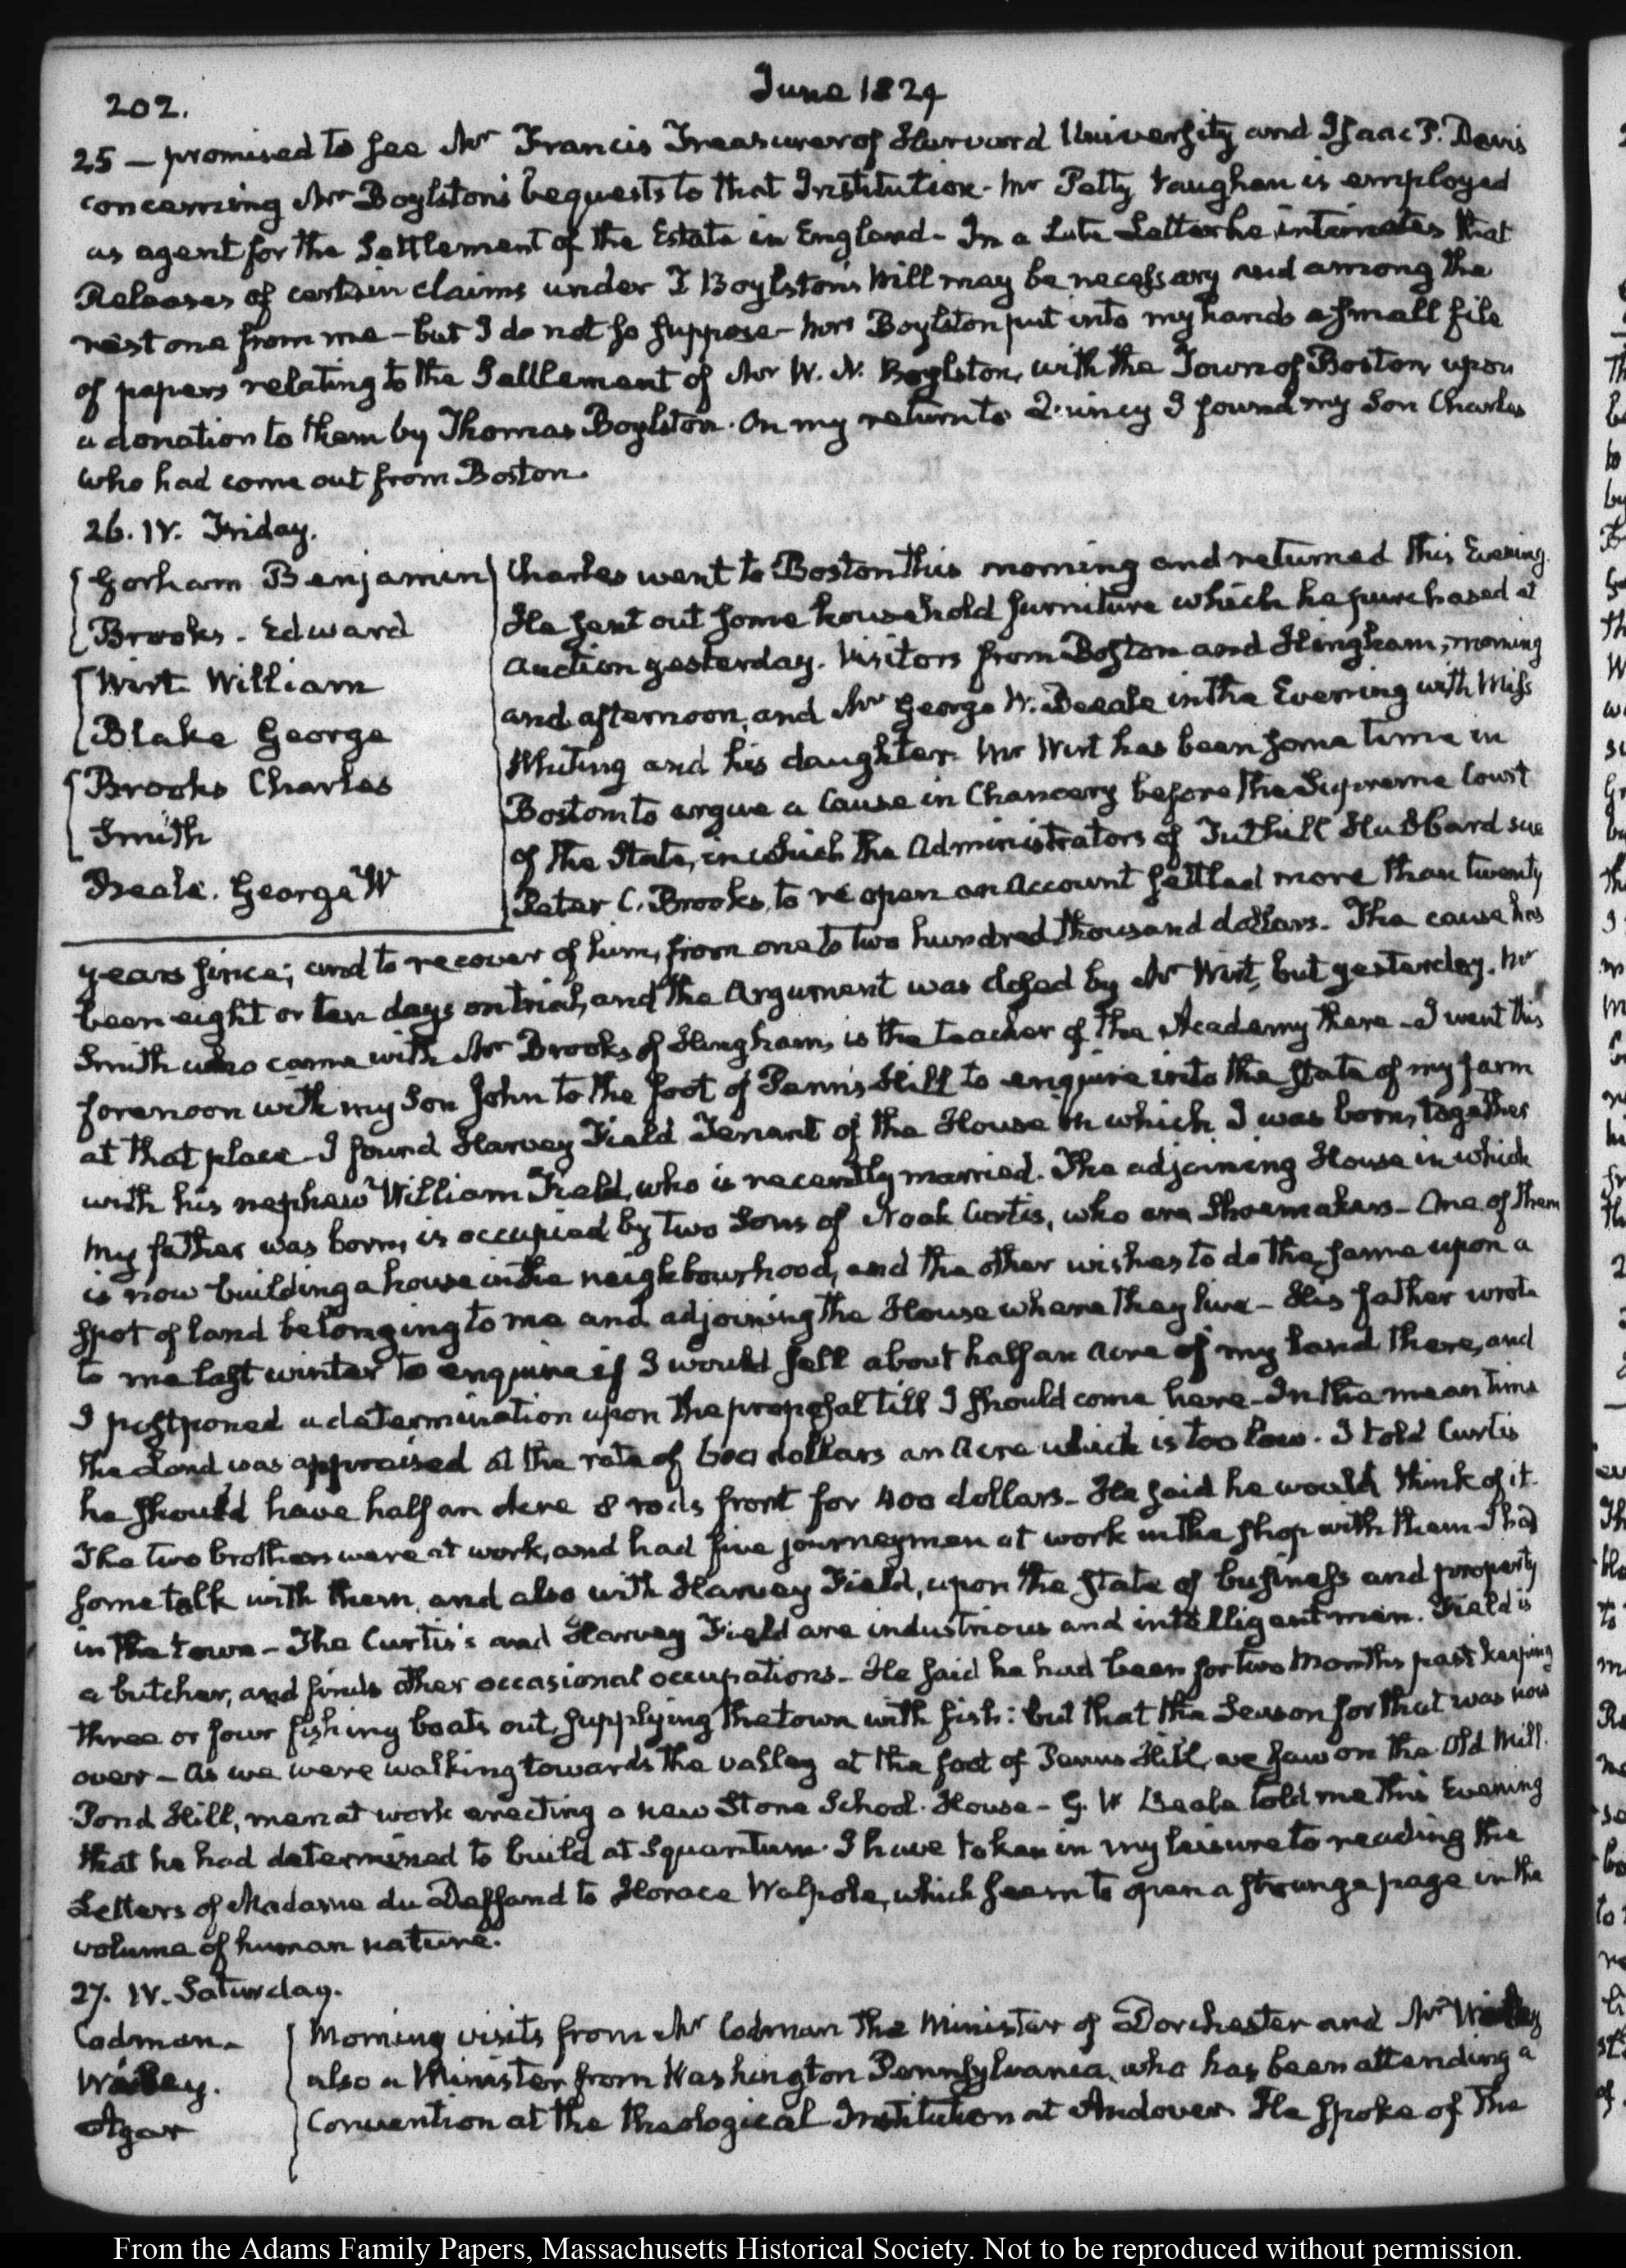 202.
June 1829
25 — promised to see Mr Francis Treasurer of Harvard University and Isaac P. Davis
concerning Mr Boylston's bequests to that Institution - Mr Petty Vaughan is employed
as agent for the Settlement of the Estate in England - In a late Letter he intimates that
Releases of certain claims under T Boylston's Will may be necessary and among the
rest one from me - but I do not so suppose - Mrs Boylston put into my hands a small file
of papers relating to the Settlement of Mr W. N. Boylston, with the Town of Boston, upon
a donation to them by Thomas Boylston. On my return to Quincy I found my Son Charles
who had come out from Boston.
26. IV. Friday.
Gorham Benjamin
Brooks. Edward
Wirt William
Blake George
Brooks Charles
Smith
Beale. George W
Charles went to Boston this morning and returned this Evening.
He sent out some household furniture which he purchased at
auction yesterday. Visitors from Boston and Hingham, morning
and afternoon, and Mr George W. Beale in the Evening with Miss
Whiting and his daughter. Mr Wirt has been some time in
Boston to argue a Cause in Chancery before the Supreme Court
of the State, in which the Administrators of Tuthill Hubbard sue
Peter C. Brooks, to re open an Account settled more than twenty
years since; and to recover of him, from one to two hundred thousand dollars. The cause has
been eight or ten days on trial, and the Argument was closed by Mr Wirt, but yesterday. Mr
Smith who came with Mr Brooks of Hingham, is the teacher of the Academy there - I went this
forenoon with my Son John to the foot of Penn's Hill to enquire into the state of my farm
at that place - I found Harvey Field Tenant of the House in which I was born, together
with his nephew William Field, who is recently married. The adjoining House in which
my father was born, is occupied by two Sons of Noah Curtis, who are Shoemakers - One of them
is now building a house in the neighbourhood, and the other wishes to do the same upon a
spot of land belonging to me and adjoining the House where they live - His father wrote
to me last winter to enquire if I would sell about half an Acre of my land there, and
I postponed a determination upon the proposal till I should come here - In the mean time
the Land was appraised at the rate of 600 dollars an Acre which is too low. I told Curtis
he should have half an Acre 8 rods front for 400 dollars - He said he would think of it.
The two brothers were at work, and had five journeymen at work in the shop with them - I had
some talk with them, and also with Harvey Field, upon the state of business and property
in the town - The Curtis's and Harvey Field are industrious and intelligent men. Field is
a butcher, and finds other occasional occupations - He said he had been for two Months past keeping
three or four fishing boats out, supplying the town with fish: but that the Season for that was now
over - As we were walking towards the valley at the foot of Penns Hill, we saw on the Old Mill
Pond Hill, men at work erecting a new Stone School. House - G. W Beale told me this Evening
that he had determined to build at Squantum. I have taken in my leisure to reading the
Letters of Madame du Deffand to Horace Walpole, which seem to open a strange page in the
volume of human nature.
27. IV. Saturday.
Codman.
Agar
Morning visits from Mr Codman the Minister of Dorchester and Mr
also a Minister from Washington Pennsylvania, who has been attending a
Convention at the theological Institution at Andover. He spoke of the
From the Adams Family Papers, Massachusetts Historical Society. Not to be reproduced without permission.